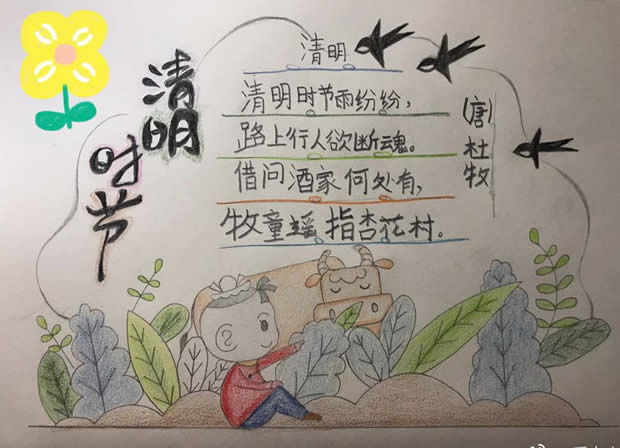 清明
时节
清明
清明时节雨纷纷，
路上行人欲断魂。
借问酒家何处有，
牧童瑶指杏花村。
(唐)杜牧